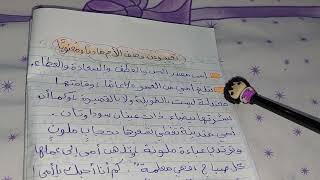 تعبير عن وصف الأم ماديا ومعنويا
أمي مصدر الحب والعطف والسعادة والعطاء،
تبلغ أمي من العمر 40 عاما، وقامتها
معتدلة ليست بالطويلة ولا القصيرة، كما أن
بشرتها بيضاء، ذات عينان سوداوتان.
أمي متدينة تغطي شعرها بحجاب ملون
وترتدي عباءة ملونة، تذهب أمي إلى عملها
كل صباح فهي معلمة، كم أنا أحبك يا أمي